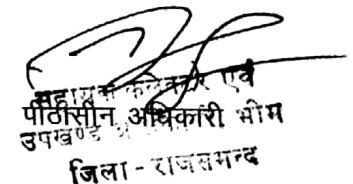 सहायक कलेक्टर एवं
पीठासीन अधिकारी भीम
उपखण्ड
जिला - राजसमन्द